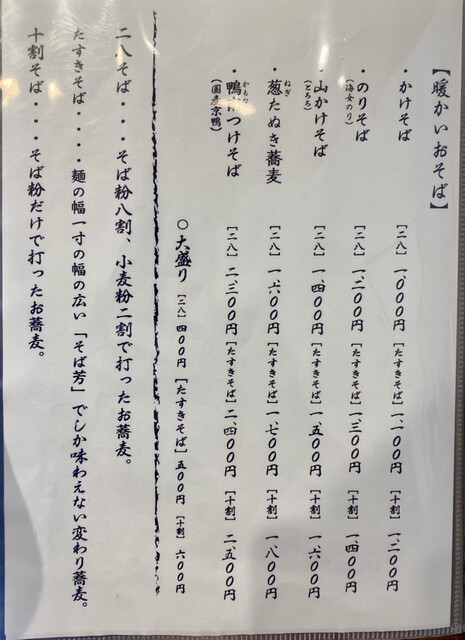 【暖かいおそば】
・かけそば [二八] 一、〇〇〇円 [たすきそば] 一、一〇〇円 [十割] 一、二〇〇円
・のりそば [二八] 一、二〇〇円 [たすきそば] 一、三〇〇円 [十割] 一、四〇〇円
(海女のり)
・山かけそば [二八] 一、四〇〇円 [たすきそば] 一、五〇〇円 [十割] 一、六〇〇円
(とろろ)
ねぎ
・葱たぬき蕎麦 [二八] 一、六〇〇円 [たすきそば] 一、七〇〇円 [十割] 一、八〇〇円
・鴨 つけそば [二八] 二、三〇〇円 [たすきそば] 二、四〇〇円 [十割] 二、五〇〇円
(国産京鴨)
〇大盛り [二八] 四〇〇円 [たすきそば] 五〇〇円 [十割] 六〇〇円
二八そば・・・そば粉八割、小麦粉二割で打ったお蕎麦。
たすきそば・・・・麺の幅一寸の幅の広い「そば芳」でしか味わえない変わり蕎麦。
十割そば・・・そば粉だけで打ったお蕎麦。